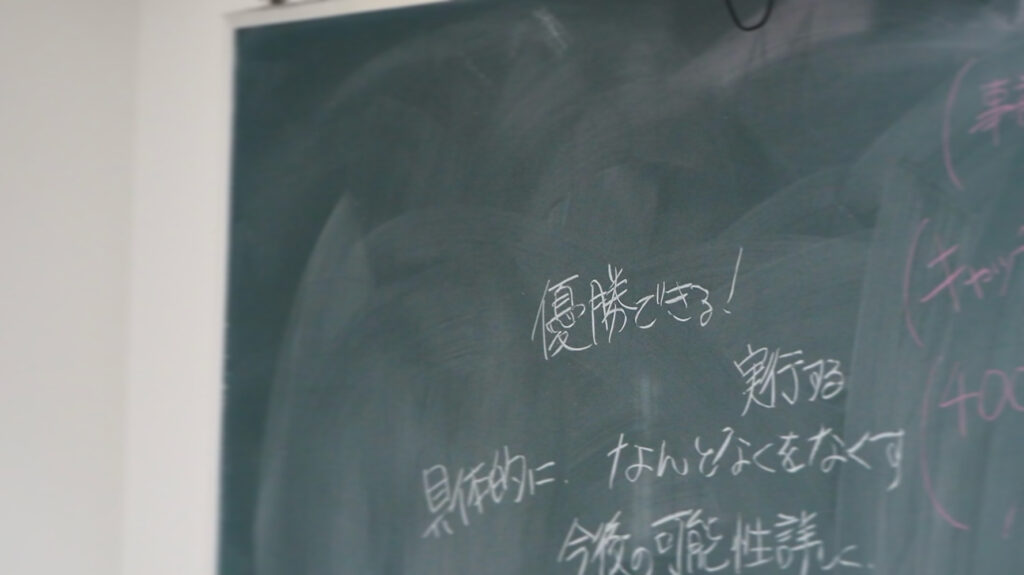 優勝できる!
実行する
具体的に.
なんとなくをなくす
今後の可能性詳しく
(キャッ
(400